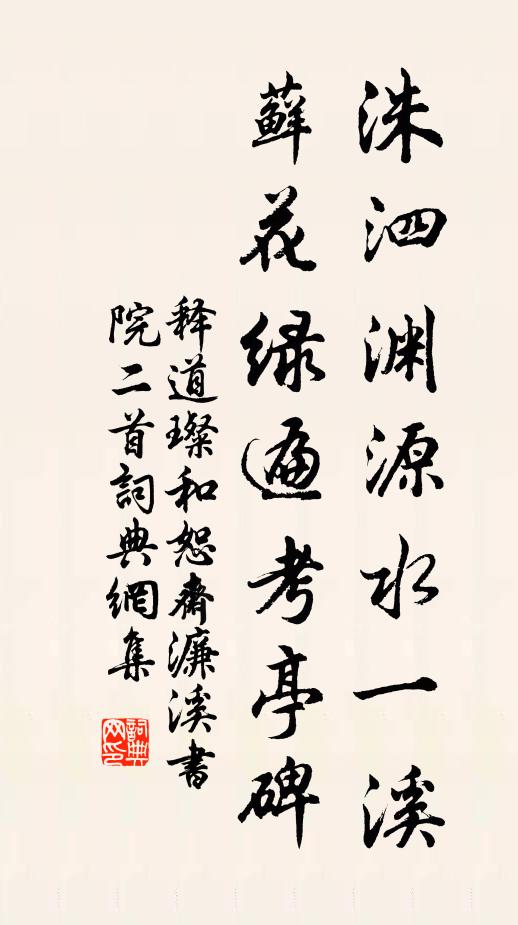 洙泗渊源水一溪
藓花绿遍考亭碑
释道璨和恕斋濂溪書
院二首詞典網集
詞典
網印